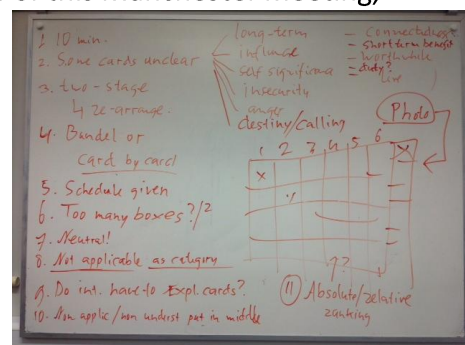 of the Manchester meeting,
1 10 min.
2. Some cards unclear
3. two-stage
↳ re-arrange.
4. Bundel or
card by card
5. Schedule given
6. Too many boxes?/2
7. Neutral!
8. Not applicable as category
9. Do int. have to Expl. cards?
10. Non applic/non underst put in middle
long-term
influence
self significance
insecurity
anger
destiny/calling
- connectedness
- short term benefit
- worthwhile
- duty?
live
Photo
1 2 3 4 5 6
x
x
9?
11 Absolute/relative
ranking